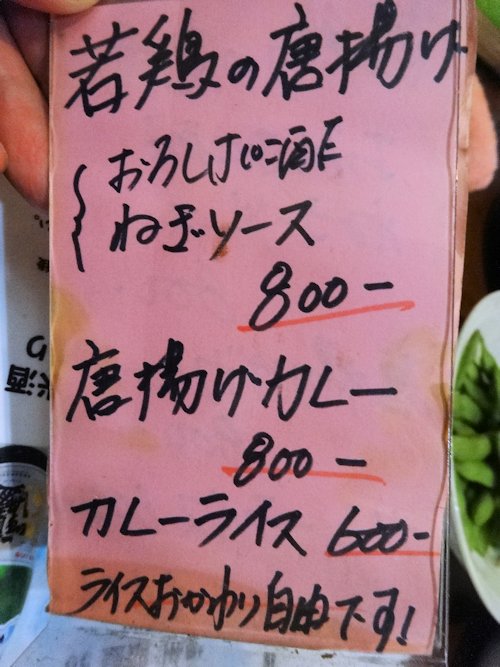 若鶏の唐揚げ
おろしぽん酒E
ねぎソース
800ー
唐揚げカレー
800ー
カレーライス 600ー
ライスおかわり自由です!
米酒